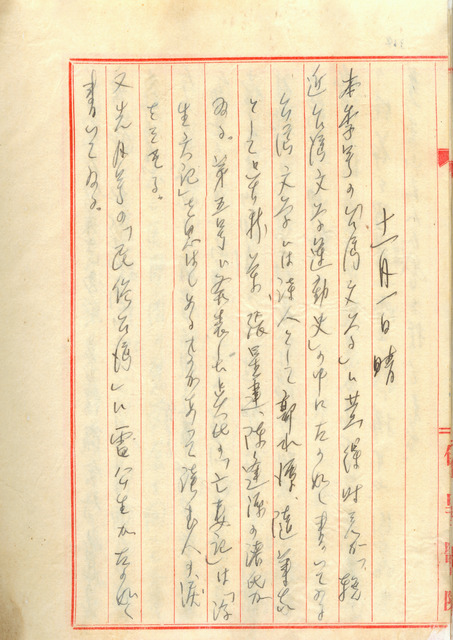 十一月一日 晴
本季号の「台湾文学」に黄得時君が「輓
近台湾文学運動史」の中に左の如く書いてゐる
台湾文学には詩人として郭水潭、随筆家
として呉新榮、張星建、陳逢源の諸氏が
ゐる。第五号に発表した呉氏の「亡妻記」は「浮
生六記」を思はしめるものがあつて読む人を涙
をさせる。
又先月号の「民俗台湾」に雷公生が左の如く
書いてゐる。